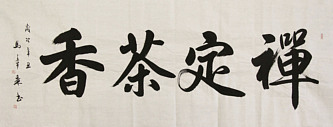 禪定茶香